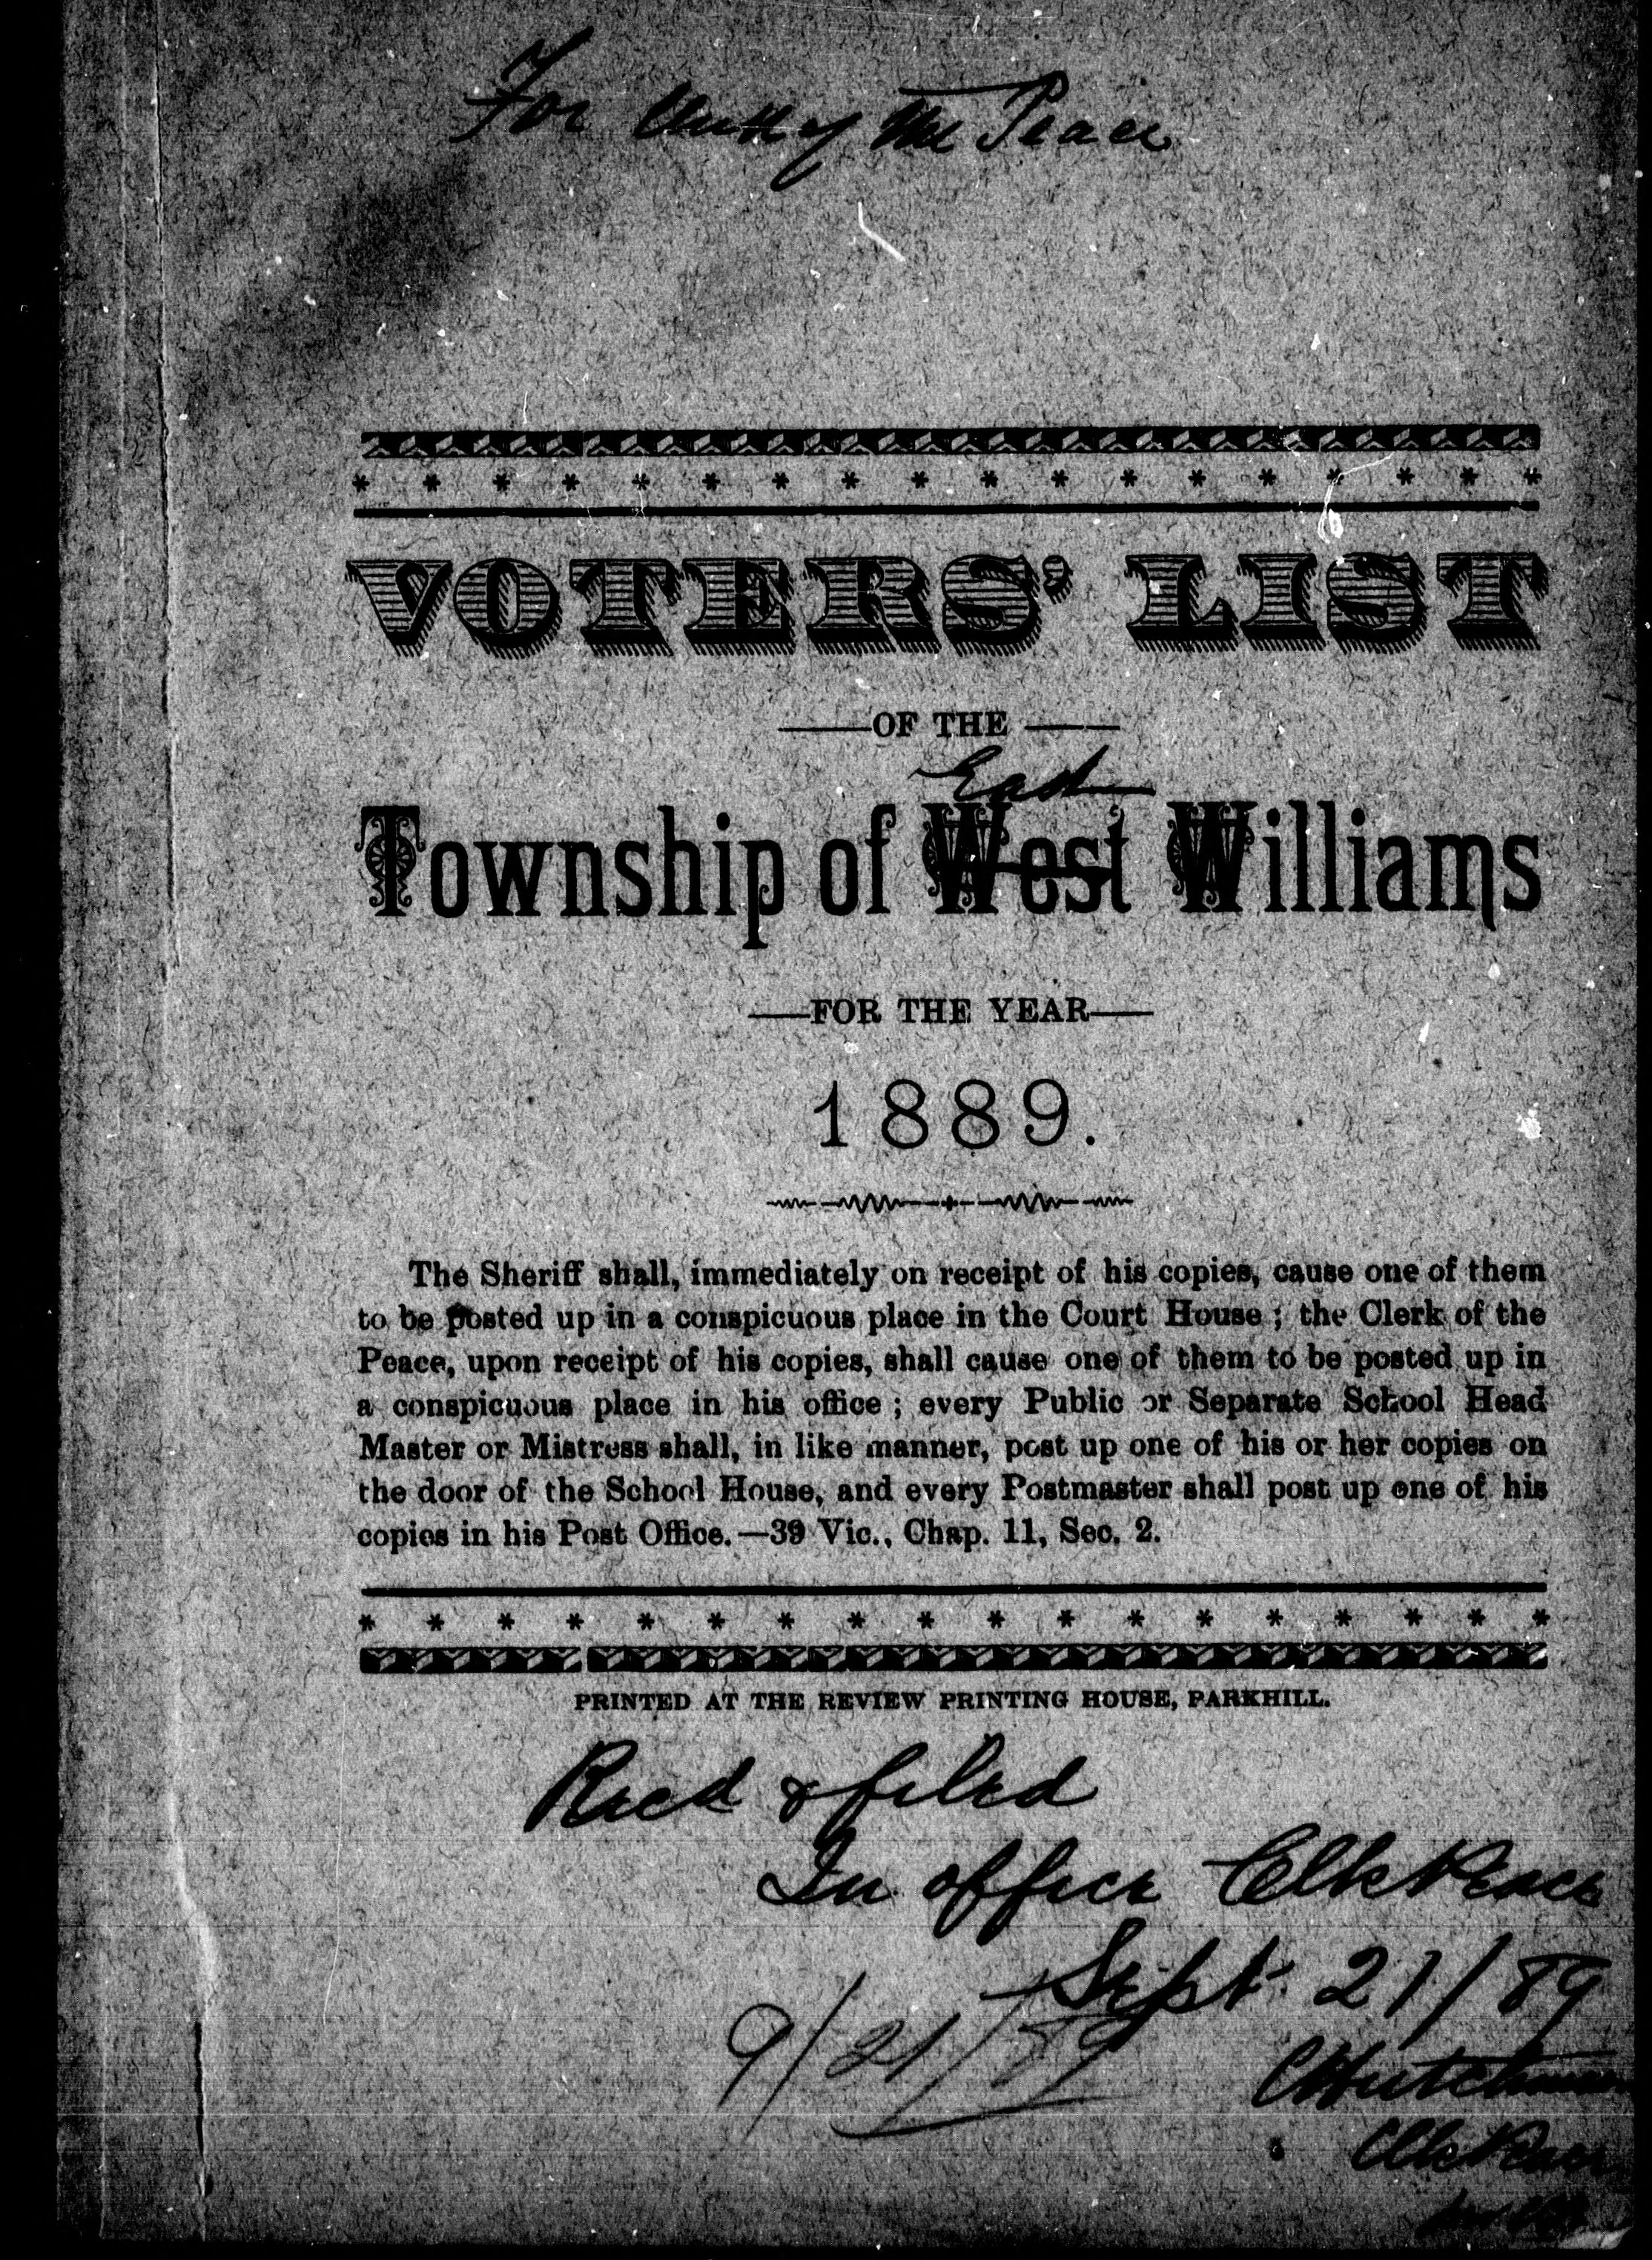 For Clerk of the Peace
VOTERS' LIST
OF THE
East
Township of West Williams
FOR THE YEAR
1889.
The Sheriff shall, immediately on receipt of his copies, cause one of them
to be posted up in a conspicuous place in the Court House ; the Clerk of the
Peace, upon receipt of his copies, shall cause one of them to be posted up in
a conspicuous place in his office ; every Public or Separate School Head
Master or Mistress shall, in like manner, post up one of his or her copies on
the door of the School House, and every Postmaster shall post up one of his
copies in his Post Office.—39 Vic., Chap. 11, Sec. 2.
PRINTED AT THE REVIEW PRINTING HOUSE, PARKHILL.
Recd & filed
In office Clk Peace
Sept. 21/89
9/21/89
CHutchinson
Clk Peace